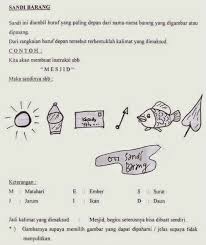 SANDI BARANG
Sandi ini diambil huruf yang paling depan dari nama-nama barang yang digambar atau
dipasang.
Dari rangkaian huruf depan tersebut terbentuklah kalimat yang dimaksud.
CONTOH :
Kita akan membuat instruksi sbb
"MESJID"
Maka sandinya sbb :
Sandi
Barang
Keterangan :
M : Matahari E : Ember S : Surat
J : Jarum I : Ikan D : Daun
Jadi kalimat yang dimaksud : Mesjid, begitu seterusnya bisa dibuat sendiri.
*) Gambarnya supaya memilih gambar yang dapat dipahami / jelas supaya tidak
menyulitkan.